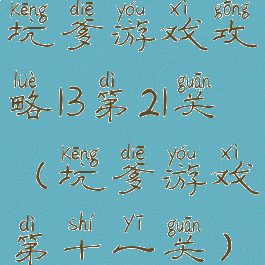 kēng diē yóu xì gōng
坑爹游戏攻
lüè dì guān
略13第21关
kēng diē yóu xì
（坑爹游戏
dì shí yī guān
第十一关）